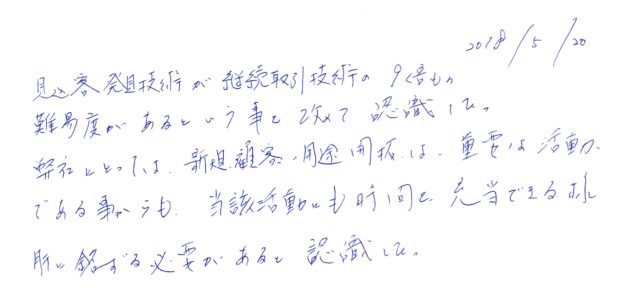 2018/5/20
見込客発見技術が継続取引技術の9倍もの
難易度があるという事を改めて認識した。
弊社にとっては、新規顧客・用途開拓は、重要な活動
である事からも、当該活動にも時間を充当できる様
肝に銘ずる必要があると認識した。